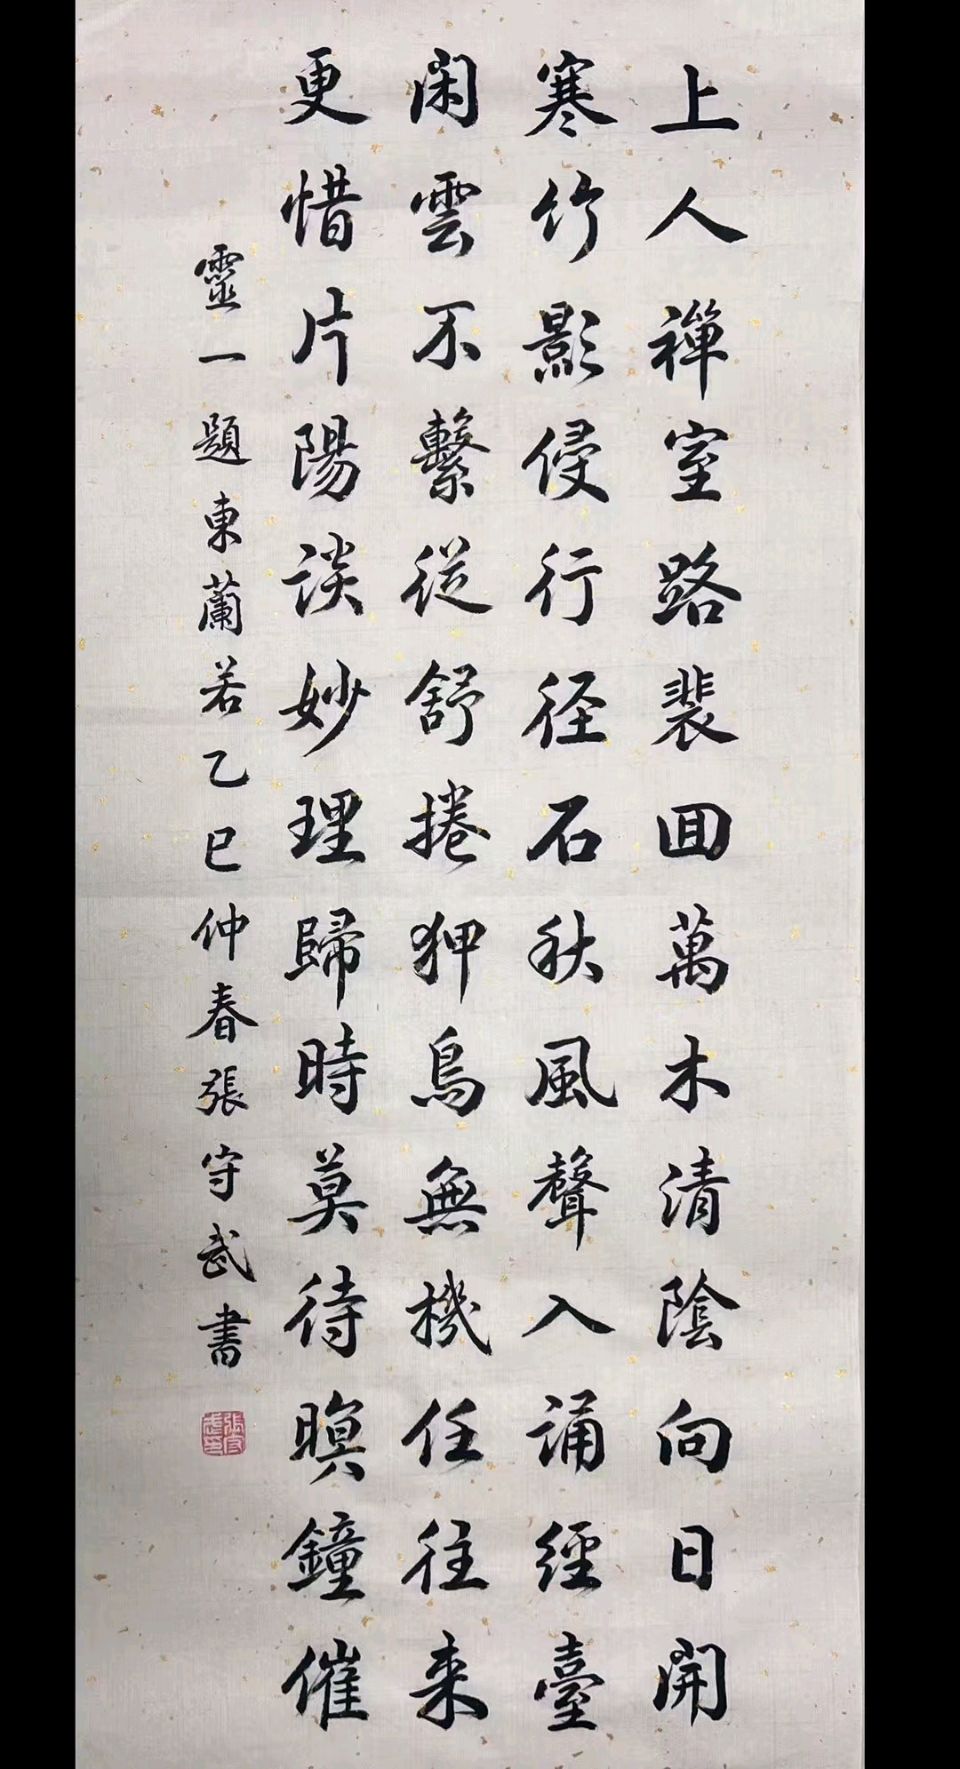 上人禪室路裴回萬木清陰向日開
寒竹影侵行径石秋風聲入誦經臺
閑雲不繫從舒捲狎鳥無機任往来
更惜片陽談妙理歸時莫待暝鐘催
靈一題東蘭若乙巳仲春張守武書
張守武印